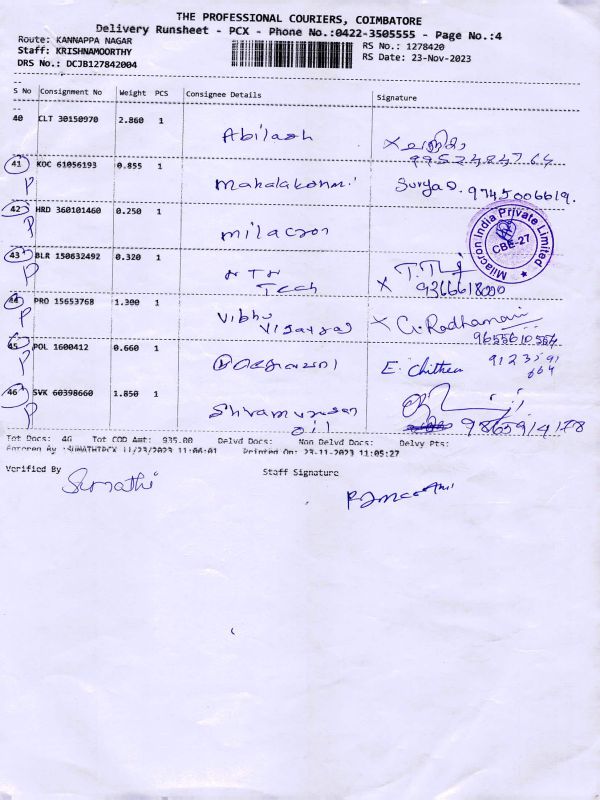 THE PROFESSIONAL COURIERS, COIMBATORE
Delivery Runsheet - PCX - Phone No.:0422-3505555 - Page No.:4
Route: KANNAPPA NAGAR
RS No.: 1278420
Staff: KRISHNAMOORTHY
RS Date: 23-Nov-2023
DRS No.: DCJB127842004
S No Consignment No Weight PCS Consignee Details Signature
40 CLT 30150970 2.860 1 Abilash
41 KOC 61056193 0.855 1 Mahalakshmi Surya D. 9745006619.
P
42 HRD 360101460 0.250 1 milacron
P
Milacron India Private Limited
CBE-27
43 BLR 150632492 0.320 1 NTN
Tech
X 9366618000
P
44 PRO 15653768 1.300 1 Vibhu
X G. Radhamani
P
45 POL 1600412 0.660 1
E. Chithra
P
46 SVK 60398660 1.850 1
oil
P
Tot Docs: 46 Tot COD Amt: 935.00 Delvd Docs: Non Delvd Docs: Delvy Pts:
Entered By :SUMATHIPCX 11/23/2023 11:04:01 Printed On: 23-11-2023 11:05:27
Verified By Staff Signature
Sumathi